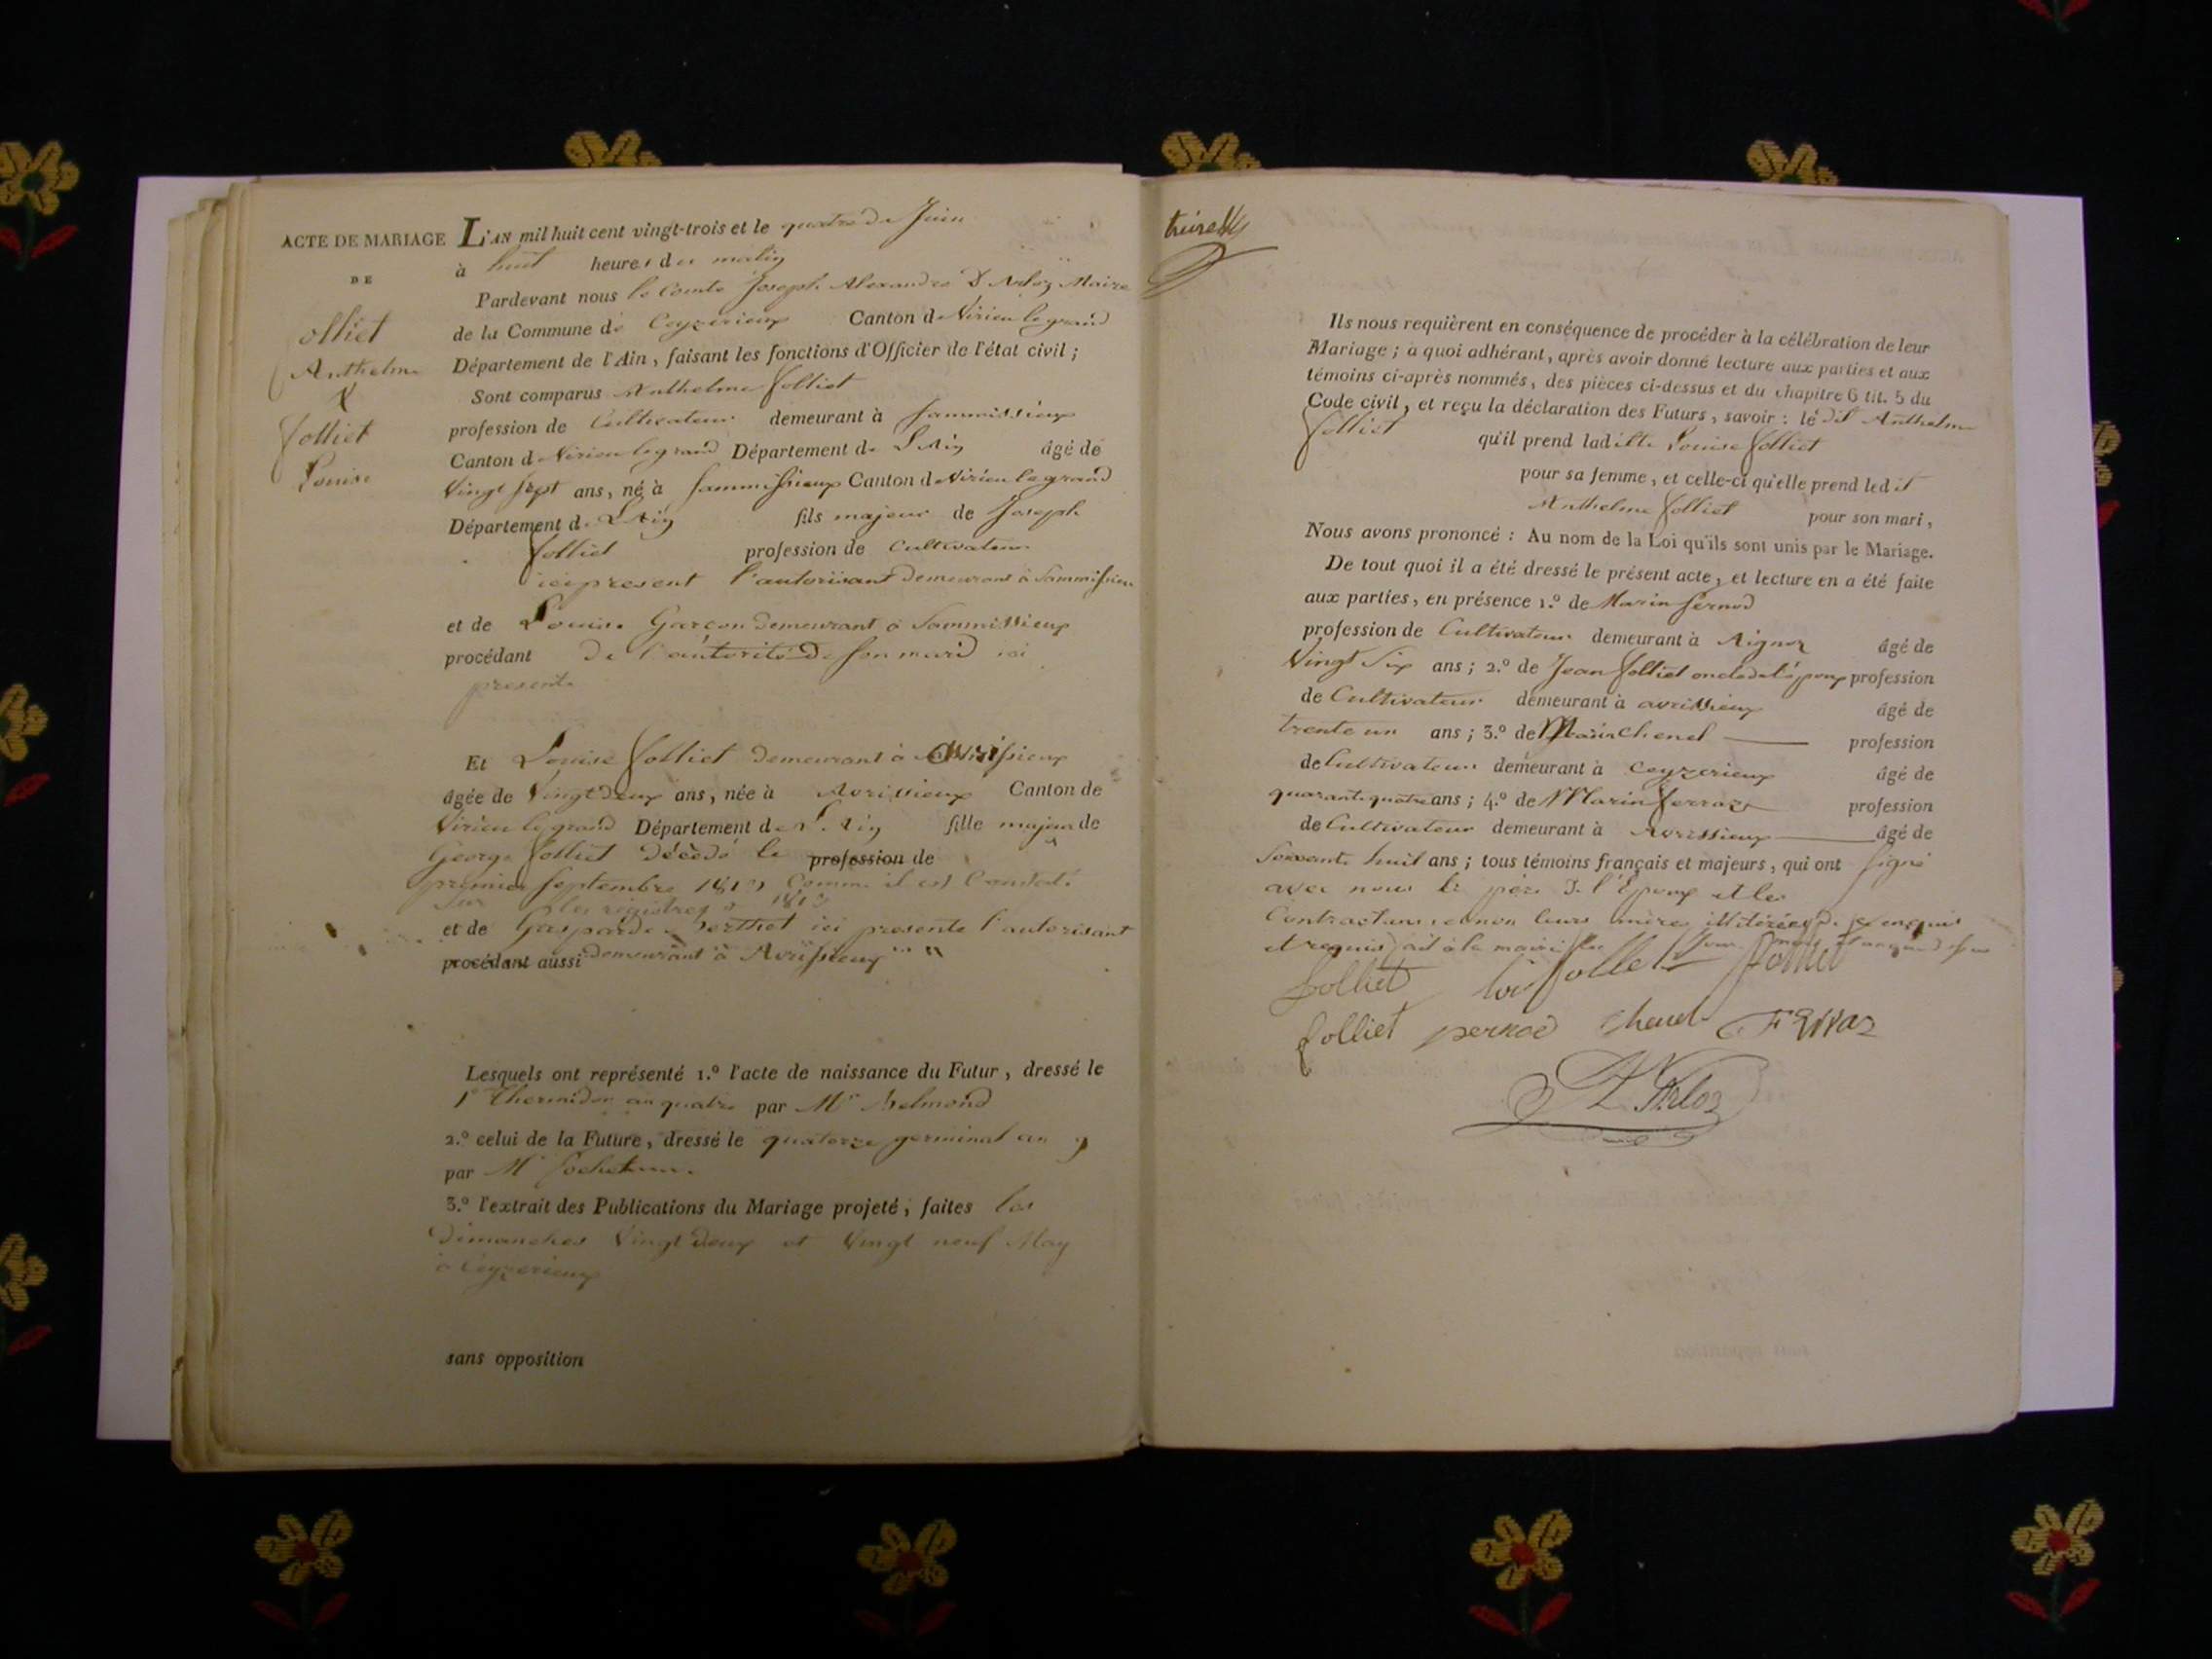 ACTE DE MARIAGE
DE
olliet
Anthelme
&
Jolliet
Louise
L'AN mil huit cent vingt-trois et le quatre de Juin
à huit heures du matin
Pardevant nous le Comte Joseph Alexandre D'Arloz Maire
de la Commune de Ceyzerieux Canton de Virieu le grand
Département de l'Ain, faisant les fonctions d'Officier de l'état civil ;
Sont comparus Anthelme Jolliet
profession de Cultivateur demeurant à Sammissieux
Canton de Virieu le grand Département de L'Ain âgé de
Vingt sept ans, né à Sammissieux Canton de Virieu le grand
Département de L'Ain fils majeur de Joseph
Jolliet profession de Cultivateur
ici present l'autorisant demeurant à Sammissieux
et de Louise Garcon demeurant à Sammissieux
procédant de l'autorité de son mari ici
presente
Et Louise Jolliet demeurant à Avrissieux
âgée de Vingt deux ans, née à Avrissieux Canton de
Virieu le grand Département de L'Ain fille majeure de
George Jolliet décédé le profession de
premier Septembre comme il est Constaté
sur les registres
et de Gasparde Berthet ici presente l'autorisant
procédant aussi demeurant à Avrissieux
Lesquels ont représenté 1.º l'acte de naissance du Futur, dressé le
1er thermidor an quatre par Mr
2.º celui de la Future, dressé le quatorze germinal an 9
par Mr
3.º l'extrait des Publications du Mariage projeté, faites les
Dimanches Vingt deux et Vingt neuf May
à Ceyzerieux
sans opposition
Ils nous requièrent en conséquence de procéder à la célébration de leur
Mariage ; à quoi adhérant, après avoir donné lecture aux parties et aux
témoins ci-après nommés, des pièces ci-dessus et du chapitre 6 tit. 5 du
Code civil, et reçu la déclaration des Futurs, savoir : le dit Anthelme
Jolliet qu'il prend laditte Louise Jolliet
pour sa femme, et celle-ci qu'elle prend ledit
Anthelme Jolliet pour son mari,
Nous avons prononcé : Au nom de la Loi qu'ils sont unis par le Mariage.
De tout quoi il a été dressé le présent acte, et lecture en a été faite
aux parties, en présence 1.º de Marin Pernod
profession de Cultivateur demeurant à Aignoz âgé de
Vingt Six ans ; 2.º de Jean Jolliet oncle de l'époux profession
de Cultivateur demeurant à avrissieux âgé de
trente un ans ; 3.º de Marin Chenel profession
de Cultivateur demeurant à Ceyzerieux âgé de
quarante quatre ans ; 4.º de Marin Ferraz profession
de Cultivateur demeurant à Avrissieux âgé de
Soixante huit ans ; tous témoins français et majeurs, qui ont signé
avec nous le père de l'Epoux et les
Contractans, et non leurs mères illitérées de ce enquis
et requis fait à la mairie
Jolliet Jolliet
Jolliet pernod chenel
D'Arloz